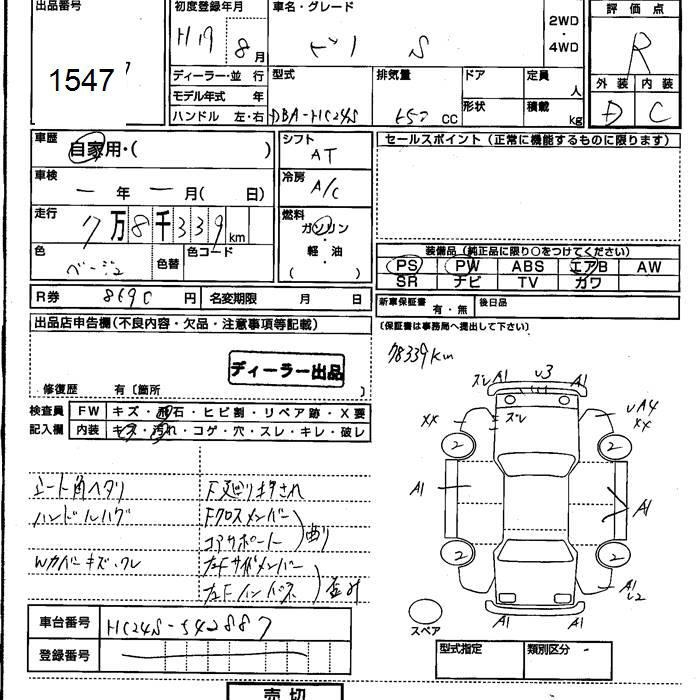 出品番号 初度登録年月 車名・グレード 評価点
1547 H17 8月 2WD・4WD R
ディーラー・並行 型式 排気量 ドア 定員 人 外装 内装
モデル年式 年 形状 積載 kg D C
ハンドル 左・右 DBA-HC24S 650 CC
車歴 自家用・( ) シフト AT セールスポイント (正常に機能するものに限ります)
車検 ー年 ー月( 日) 冷房 A/C
走行 7万8千339km 燃料 ガソリン・軽油( ・ )
色 ベージュ 色替 色コード 装備品(純正品に限り○をつけてください)
PS PW ABS エアB AW
SR ナビ TV カワ
R券 8690円 名変期限 月 日 新車保証書 有・無 後日品
(保証書は事務局へ提出して下さい)
出品店申告欄(不良内容・欠品・注意事項等記載)
78339km
ディーラー出品
修復歴 有〔箇所 〕
検査員 FW キズ・飛石・ヒビ割・リペア跡・X要
記入欄 内装 キズ・汚れ・コゲ・穴・スレ・キレ・破レ
ズレ A1 U3 A1
XX ズレ UA4
XX
2 2
A1 A1
2 2
A1
A1 A1
シート角ヘタリ
ハンドルハゲ Fクロスメンバー
コアサポート 曲り
Wカバーキズ・ワレ 左Fサイドメンバー
左Fインパネ
スペア
車台番号 HC24S-542887
登録番号
型式指定 類別区分 -
売切